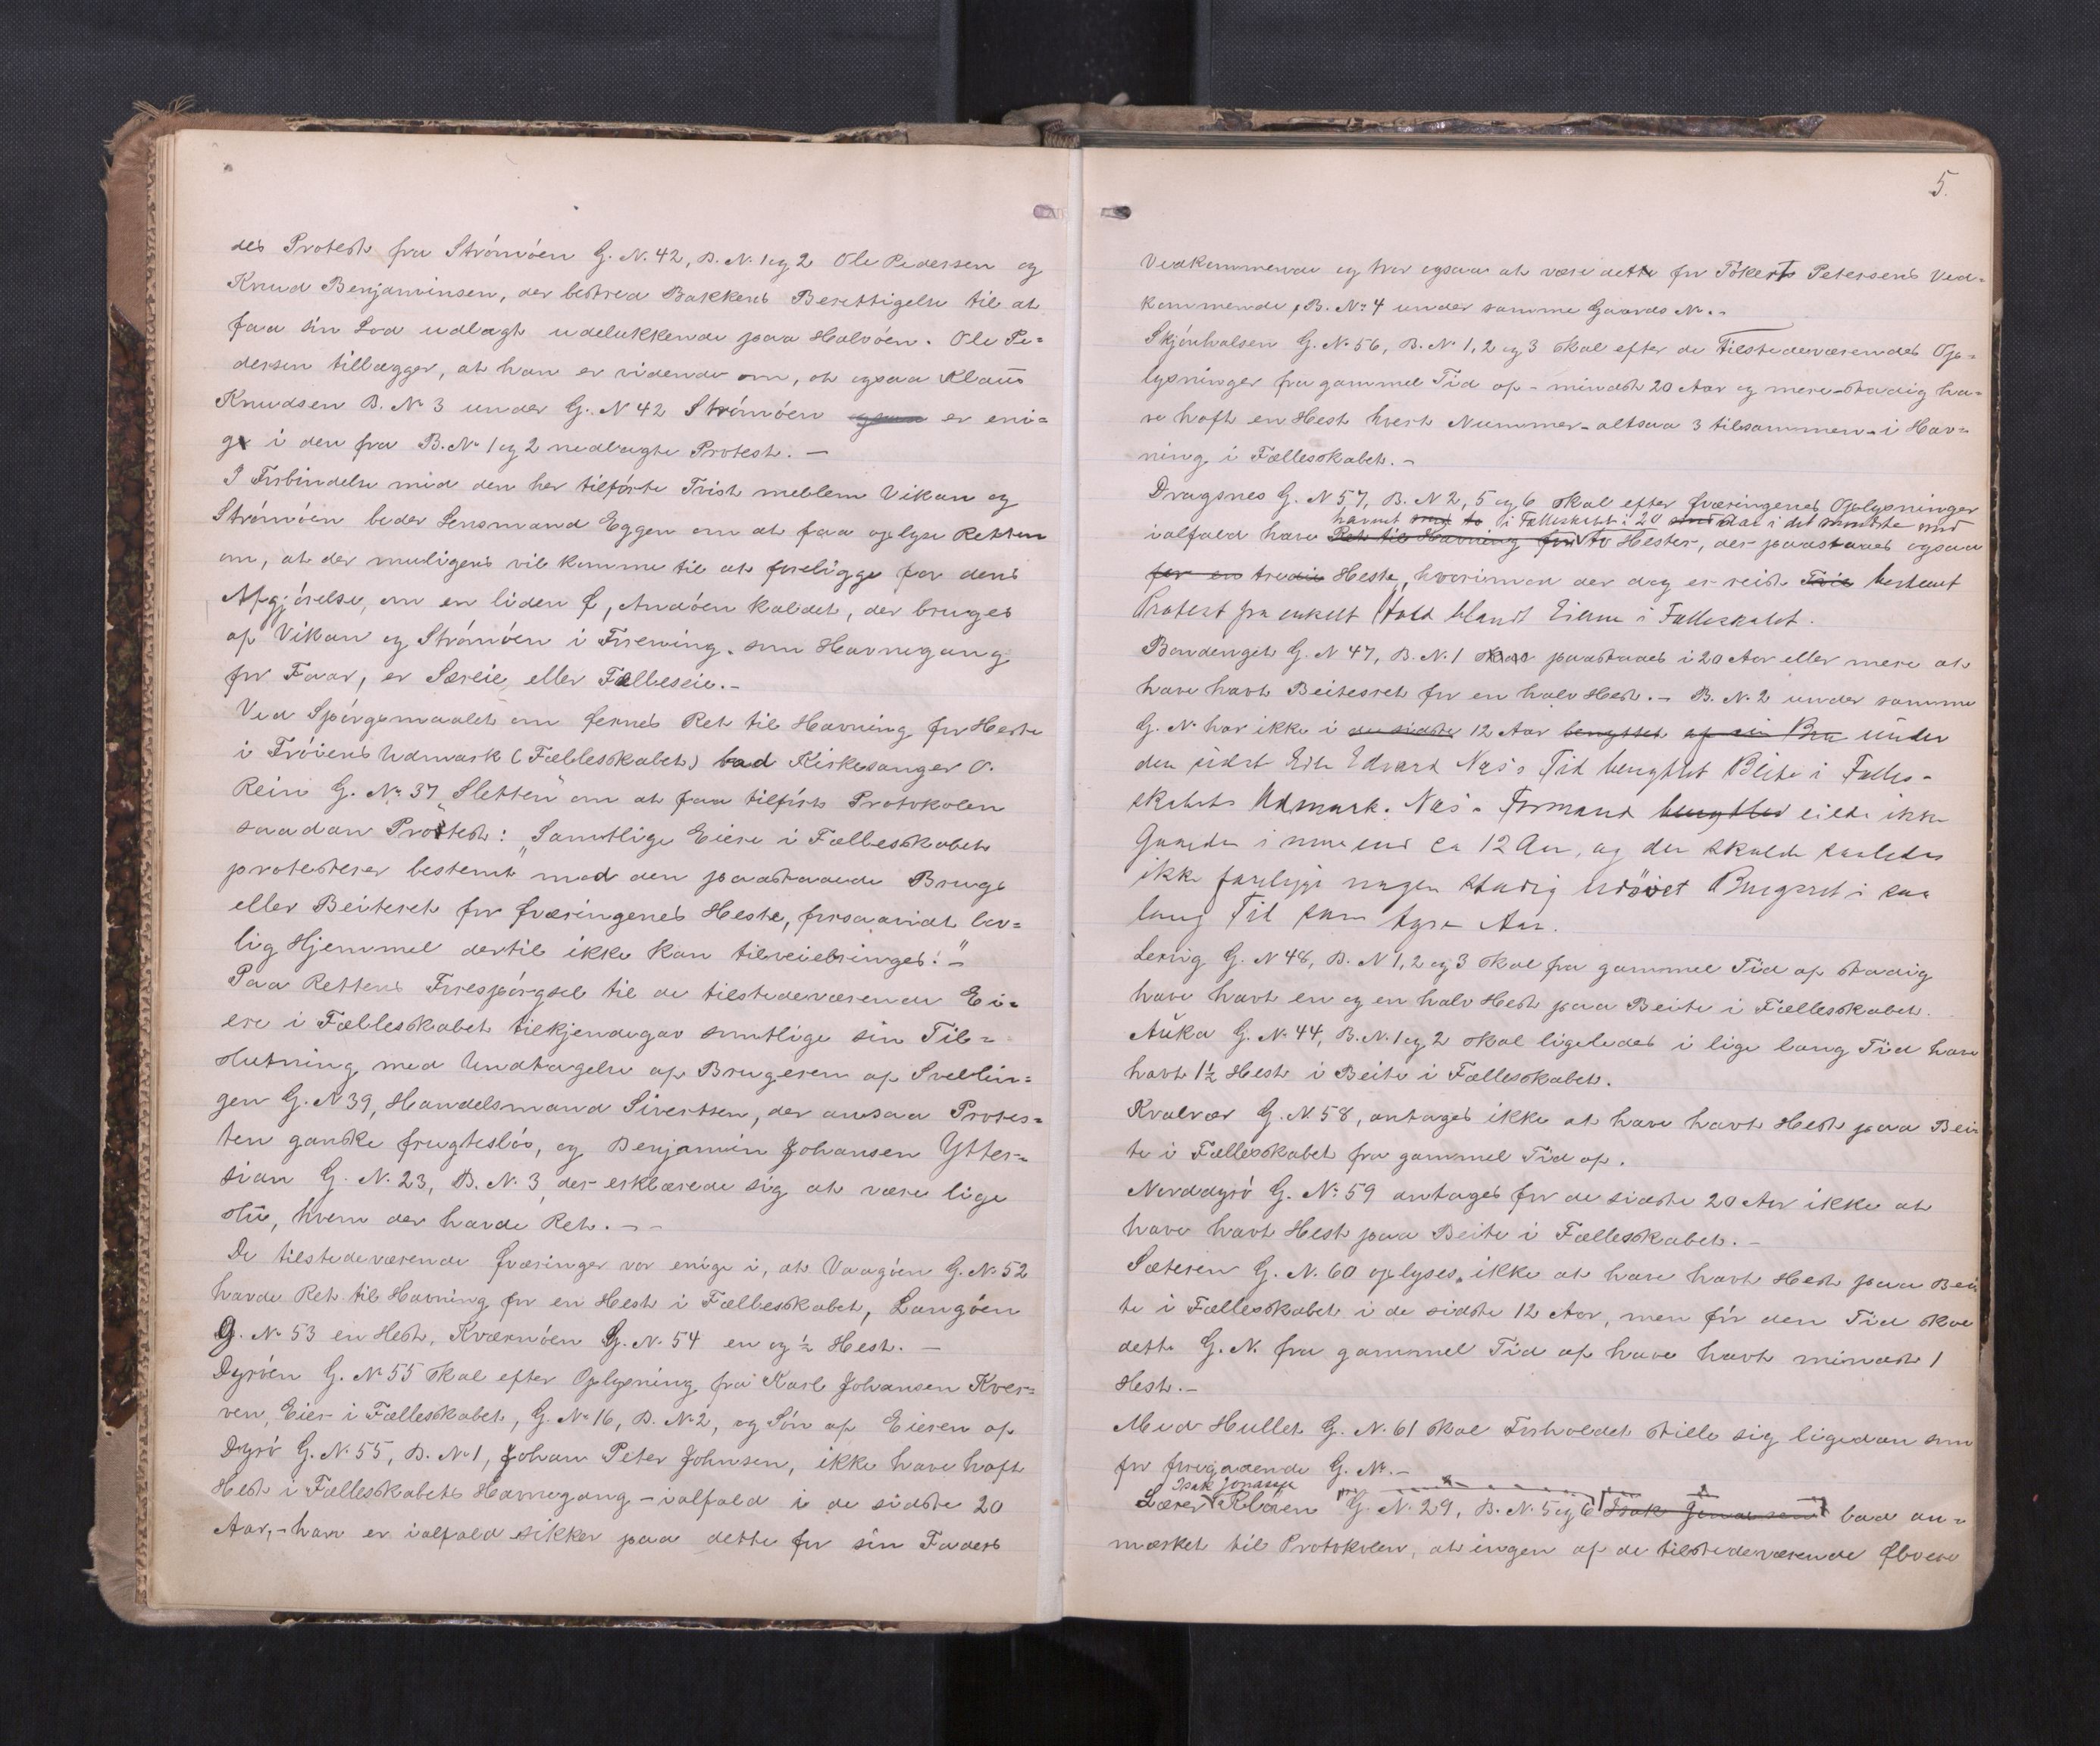 des Protest fra Strömöen G. N. 42, B. N. 1 og 2 Ole Pedersen og
Knud Benjaminsen, der bestred Bakkens Berettigelse til at
faa sin Lod udlagt udelukkende paa Halvöen. Ole Pe=
dersen tillægger, at han er vidende om, at ogsaa Klaus
Knudsen B. N. 3 under G. N 42 Strömöen ogsaa er eni=
g i den fra B. No 1 og 2 nedlagte Protest. —
I Forbindelse med den her tilförte Tvist mellem Vikan og
Strömöen beder Lensmand Eggen om at faa oplyse Retten
om, at der muligens vil komme til at foreligge for dens
Afgjörelse, om en liden Ø, Andöen kaldet, der bruges
af Vikan og Strömöen i Forening som Havnegang
for Faar, er Særeie eller Fælleseie. –
Ved Spörgsmaalet om Øernes Ret til Havning for Heste
i Fröiens Udmark (Fællesskabet) bad Kirkesanger O.
Rein G. No 37 „Sletten" om at faa tilfört Protokolen
saadan Protest: „Samtlige Eiere i Fællesskabet
protesterer bestemt mod den paastaaede Brugs
eller Beiteret for Øværingenes Heste, forsaavidt lov=
lig Hjemmel dertil ikke kan tilveiebringes." –
Paa Rettens Forespörgsel til de tilstedeværende Ei=
ere i Fællesskabet tilkjendegav samtlige sin Til=
slutning med Undtagelse af Brugeren af Svellin=
gen G. N 39, Handelsmand Sivertsen, der ansaa Protes=
ten ganske frugteslös, og Benjamin Johansen Ytter=
sian G. N. 23, B. N. 3, der erklærede sig at være lige
glad, hvem der havde Ret. – –
De tilstedeværende Øværinger var enige i, at Vaagöen G. No 52
havde Ret til Havning for en Hest i Fællesskabet, Langöen
G. No 53 en Hest, Kværnöen G. N. 54 en og ½ Hest. –
Dyröen G. No 55 skal efter Oplysning fra Karl Johansen Kver=
ven, Eier i Fællesskabet, G. No 16, B. No 2, og Sön af Eieren af
Dyrö G. N. 55, B. No 1, Johan Peter Johnsen, ikke have haft
Hest i Fællesskabets Havnegang – ialfald i de sidste 20
Aar, – han er ialfald sikker paa dette for sin Faders
5.
Vedkommende og tror ogsaa at være dette for Tökert Petersens Ved=
kommende, B. No 4 under samme Gaards No. –
Skjönhalsen G. No 56, B. No 1, 2 og 3 skal efter de Tilstedeværendes Op=
lysninger fra gammel Tid af – mindst 20 Aar og mere – stadig ha=
ve haft en Hest hvert Nummer – altsaa 3 tilsammen – i Hav=
ning i Fællesskabet. –
Dragsnes G. N 57, B. N 2, 5 og 6 skal efter Øværingenes Oplysninger
havnet i Fællesskabet i 20 Aar i det mindste med
ialfald have Ret til Havning for to Hester, der paastaaes ogsaa
for en tredie Heste, hvorimod der dog er reist bestemt
Protest fra enkelt Hold blandt Eierne i Fællesskabet.
Bondenget G. N 47, B. N. 1 paastaaes i 20 Aar eller mere at
have havt Beitesret for en halv Hest. – B. N. 2 under samme
G. No har ikke i de sidste 12 Aar benyttet af sin under
den sidst Eier Edvard Næs's Tid benyttet Beite i Fælles-
skabets Udmark. Næs's Formand benyttet eiede ikke
Gaarden i mere end ca 12 Aar, og der skulde saaledes
ikke foreligge nogen stadig udövet Brugsret i saa
lang Tid som tyve Aar.
Lerrig G. N 48, B. N 1, 2 og 3 skal fra gammel Tid af stadig
have havt en og en halv Hest paa Beite i Fællesskabet.
Auka G. N. 44, B. N. 1 og 2 skal ligeledes i lige lang Tid have
havt 1½ Hest i Beite i Fællesskabet.
Kvalvær G. N. 58, antages ikke at have havt Hest paa Bei
te i Fællesskabet fra gammel Tid af.
Norddyrö G. No 59 antages for de sidste 20 Aar ikke at
have havt Hest paa Beite i Fællesskabet. –
Sæteren G. N. 60 oplyses ikke at have havt Hest paa Bei
te i Fællesskabet i de sidste 12 Aar, men för den Tid skal
dette G. N. fra gammel Tid af have havt mindst 1
Hest. –
Med Hullet G. N. 61 skal Forholdet stille sig ligedan som
for foregaaende G. No. –
Isak Jonassen
Lærer G. N. 29, B. N. 5 og 6 Isak Jonassen bad an=
mærket til Protokolen, at ingen af de tilstedeværende Øboere